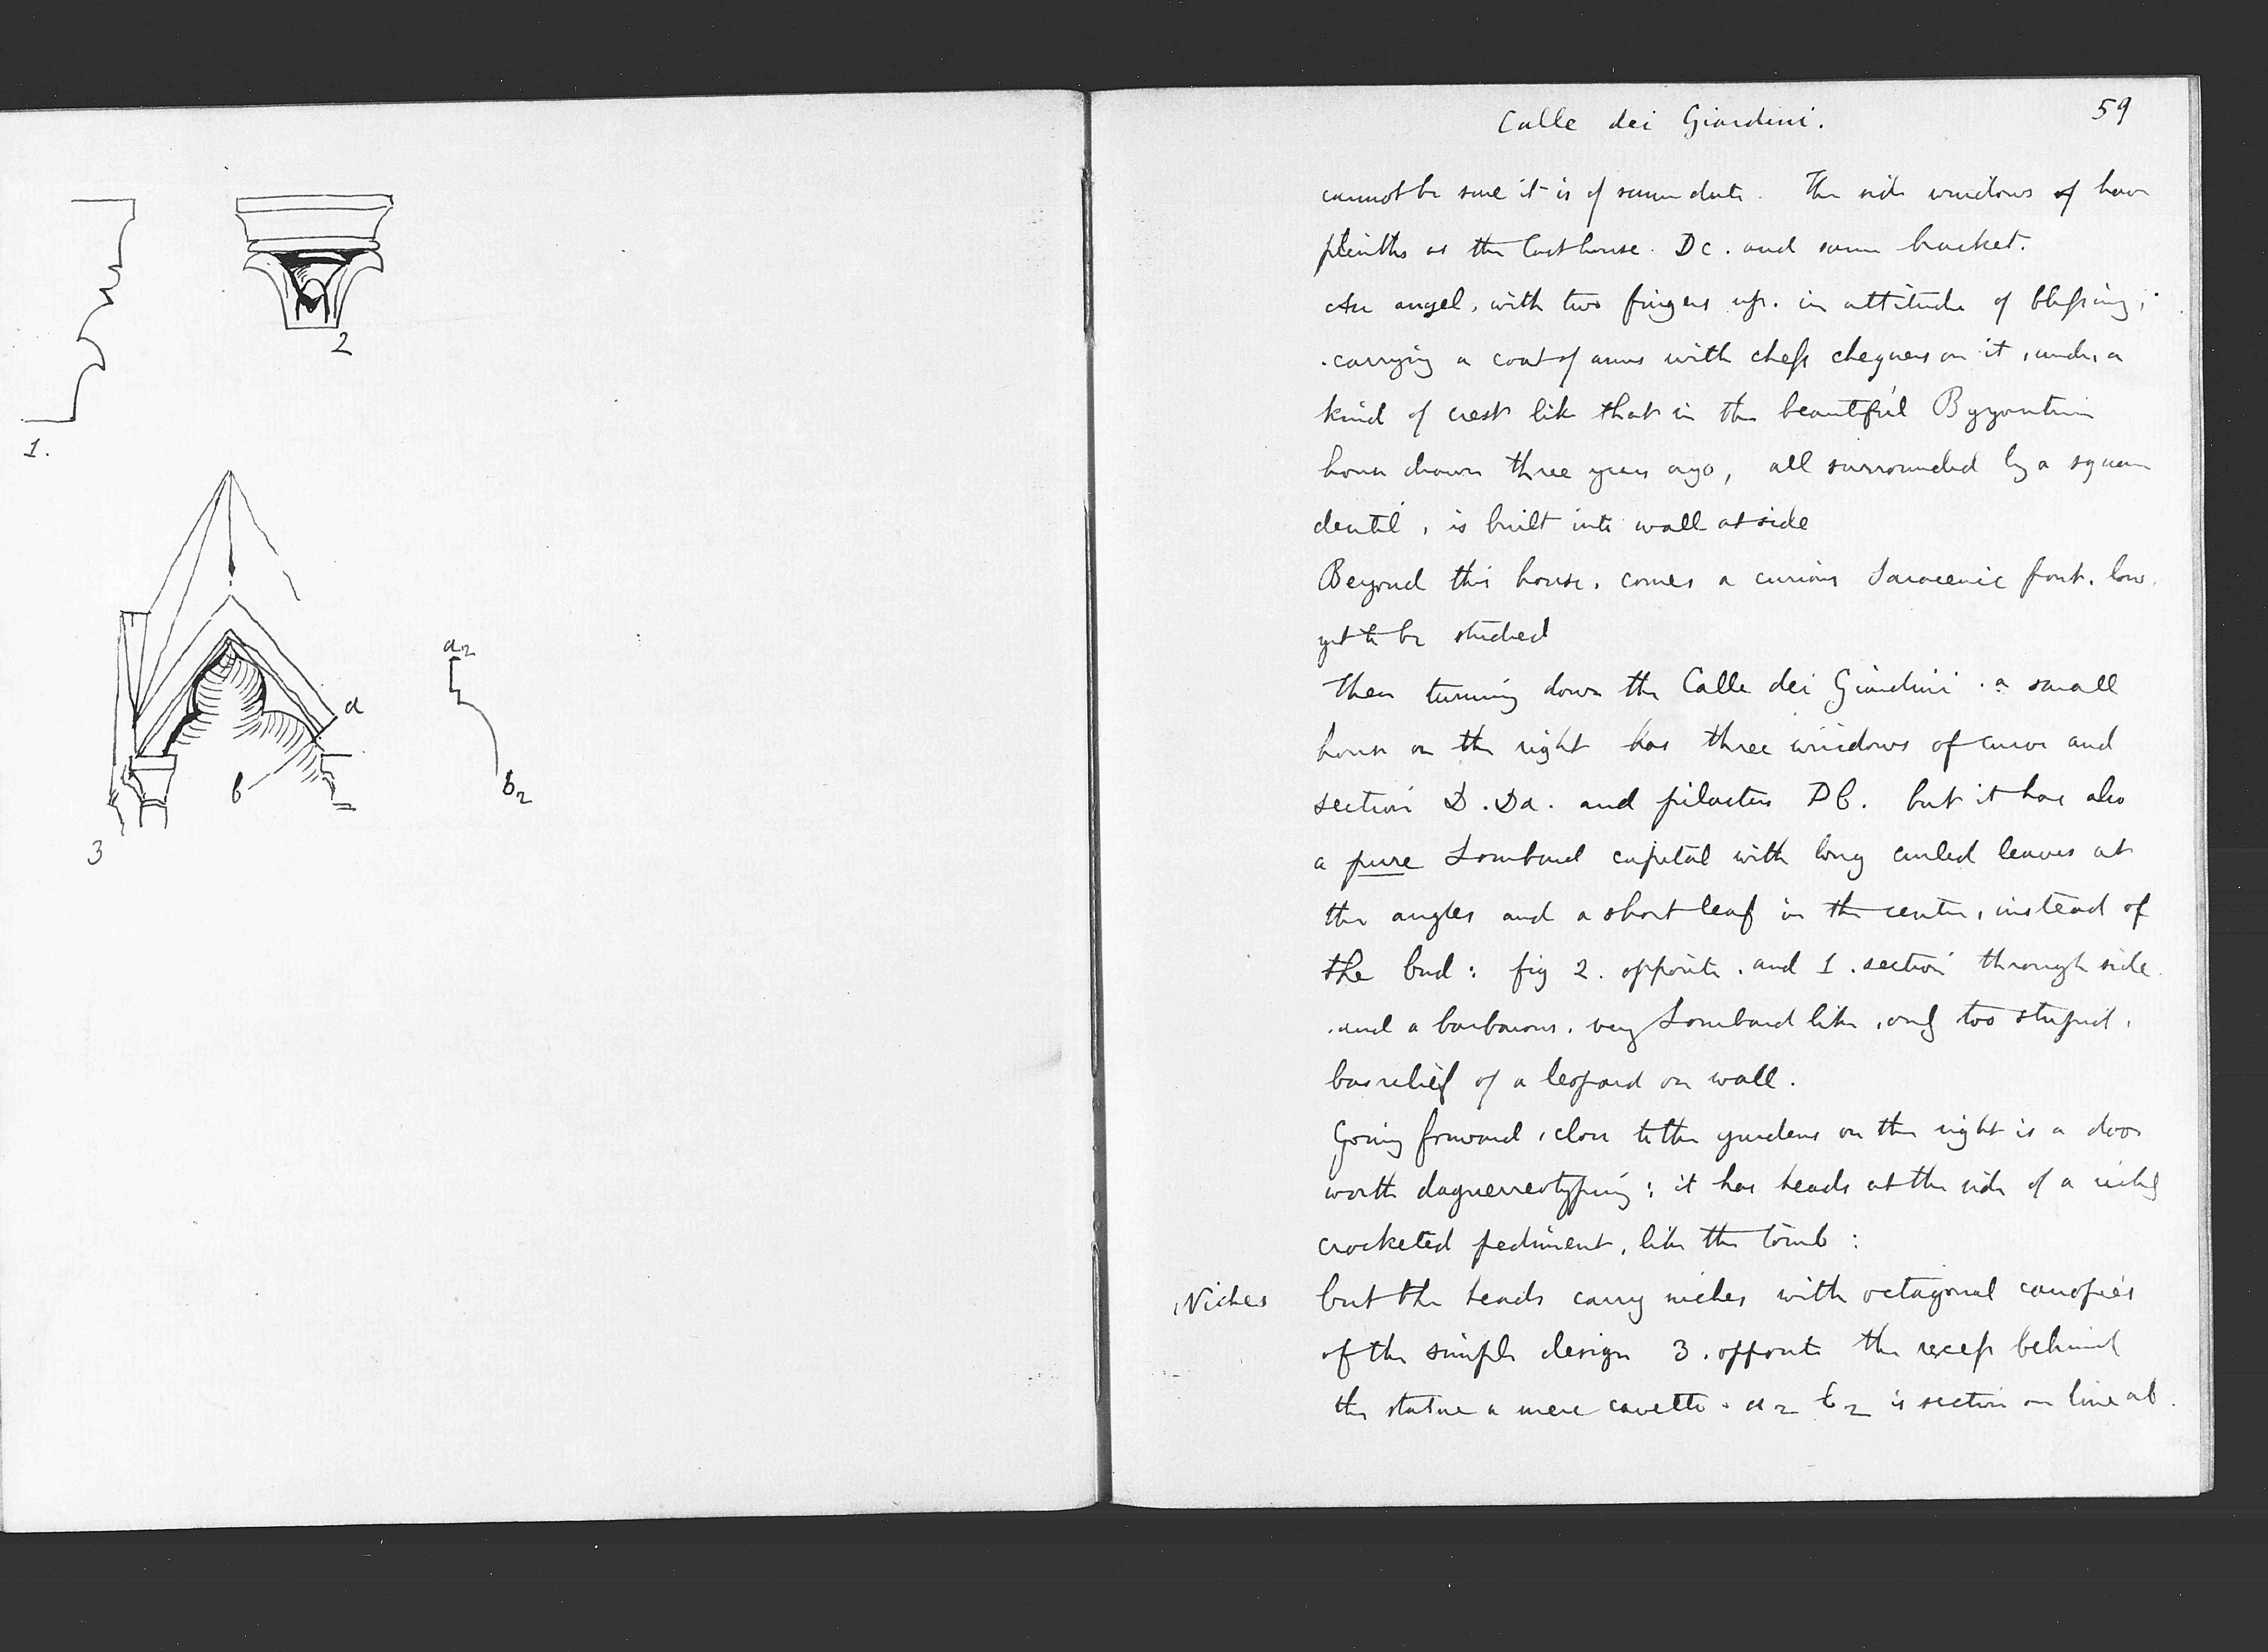 1.
2
a
b
3
a2
b2
Calle dei Giardini.
59
cannot be sure it is of same date. The side windows of have
plinths as the last house. Dc. and same bracket.
An angel, with two fingers up. in attitude of blessing,
carrying a coat of arms with chess chequers on it, under a
kind of crest like that in the beautiful Byzantine
house drawn three years ago, all surrounded by a square
dentil, is built into wall at side
Beyond this house. comes a curious Saracenic font. low.
yet to be studied
Then turning down the Calle dei Giardini. a small
house on the right has three windows of curve and
section D. Da. and pilasters Db. but it has also
a pure Lombard capital with long curled leaves at
the angles and a short leaf in the centre, instead of
the bud: fig 2. opposite. and 1. section through side.
and a barbarous. very Lombard like, only too stupid,
basrelief of a leopard on wall.
Going forward, close to the gardens on the right is a door
worth daguerreotyping; it has heads at the side of a richly
crocketed pediment, like the tomb:
Niches
but the heads carry niches with octagonal canopies
of the simple design 3. opposite the recess behind
the statue a mere cavetto. a2 b2 is section on line ab.